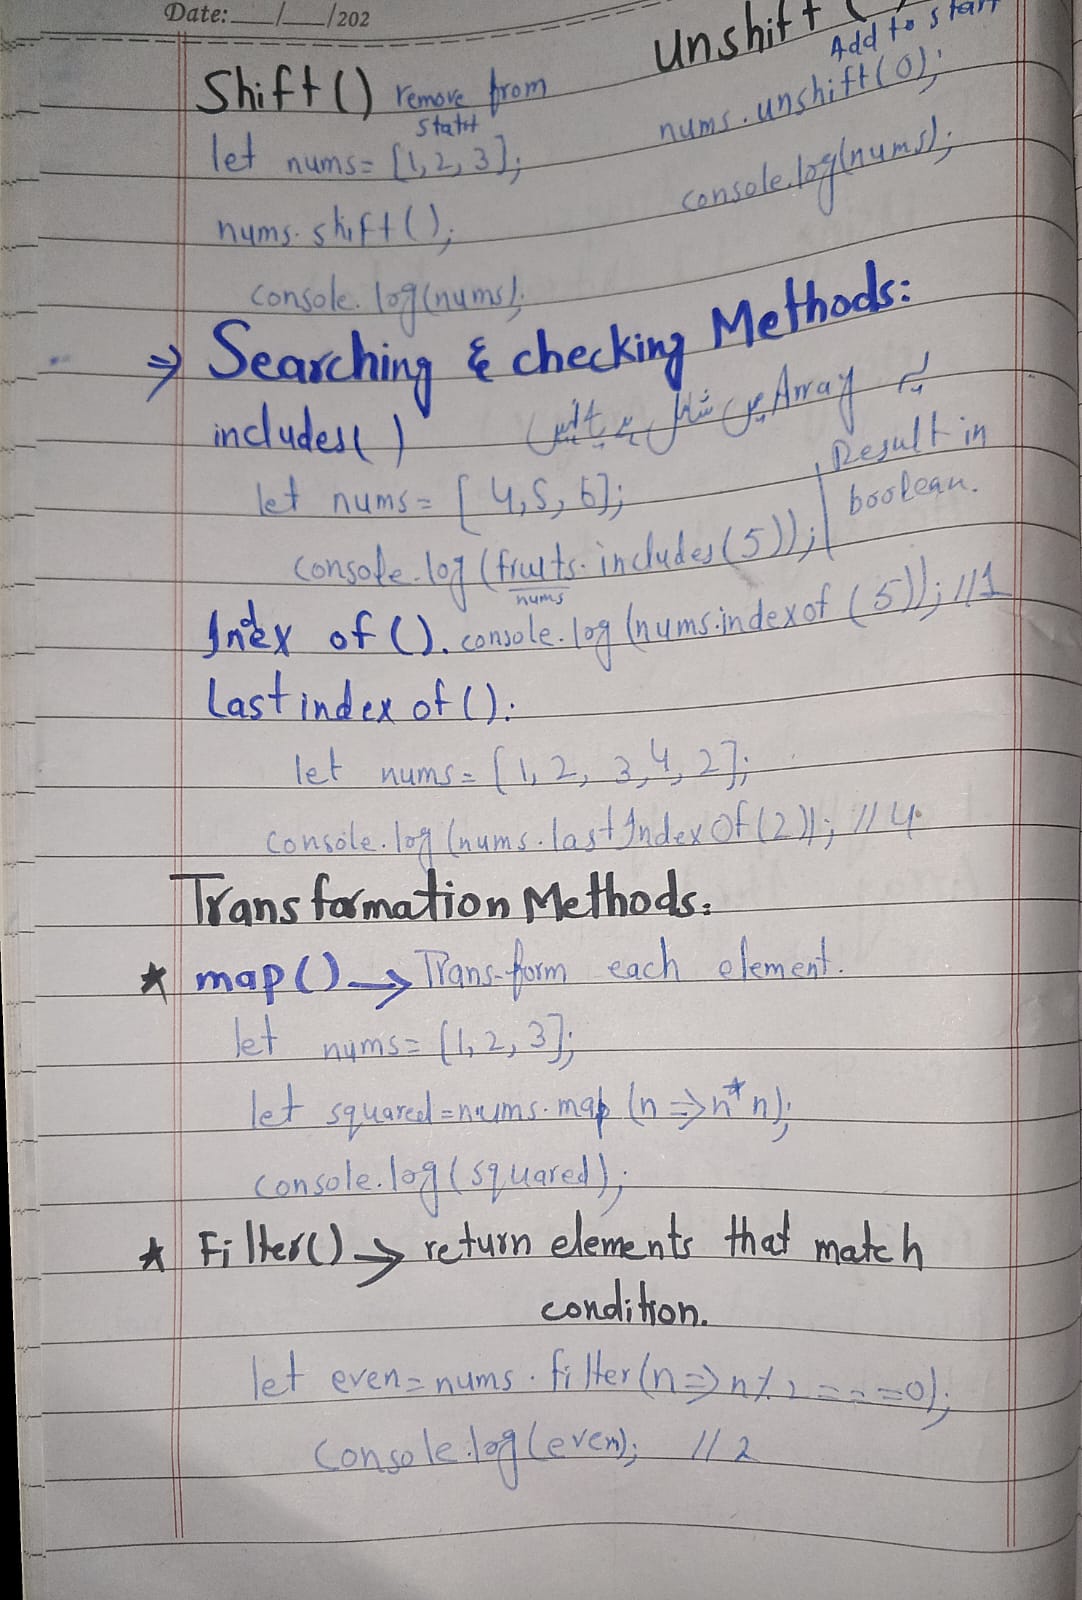 Date: __/__/202
Shift() remove from
statrt
let nums= [1, 2, 3];
nums. shift();
console. log(nums);
unshift (
Add to start
nums. unshift(0);
console.log(nums);
⇒ Searching & checking Methods:
includes( )
یہ Array میں شامل ہے یا نہیں
let nums= [ 4, 5, 6];
Result in
boolean.
console.log (fruits. includes(5));
nums
Index of (). console. log (nums.indexof (5)); //1
Last index of ():
let nums= [1, 2, 3, 4, 2];
console. log (nums. lastIndexOf(2)); // 4
Transformation Methods:
* map() → Trans-form each element.
let nums= [1, 2, 3];
let squared=nums. map (n => n*n);
console. log( squared);
* Filter() → return elements that match
condition.
let even= nums. filter(n => n % 2 ===0);
console.log(even); // 2